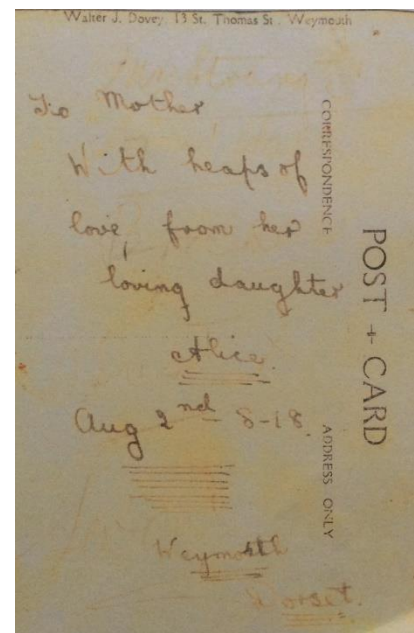 Walter J. Dovey, 13 St. Thomas St., Weymouth
To Mother
With heaps of
love, from her
loving daughter
Alice.
Aug 2nd 8-18.
Weymouth
Dorset.
CORRESPONDENCE
POST + CARD
ADDRESS ONLY